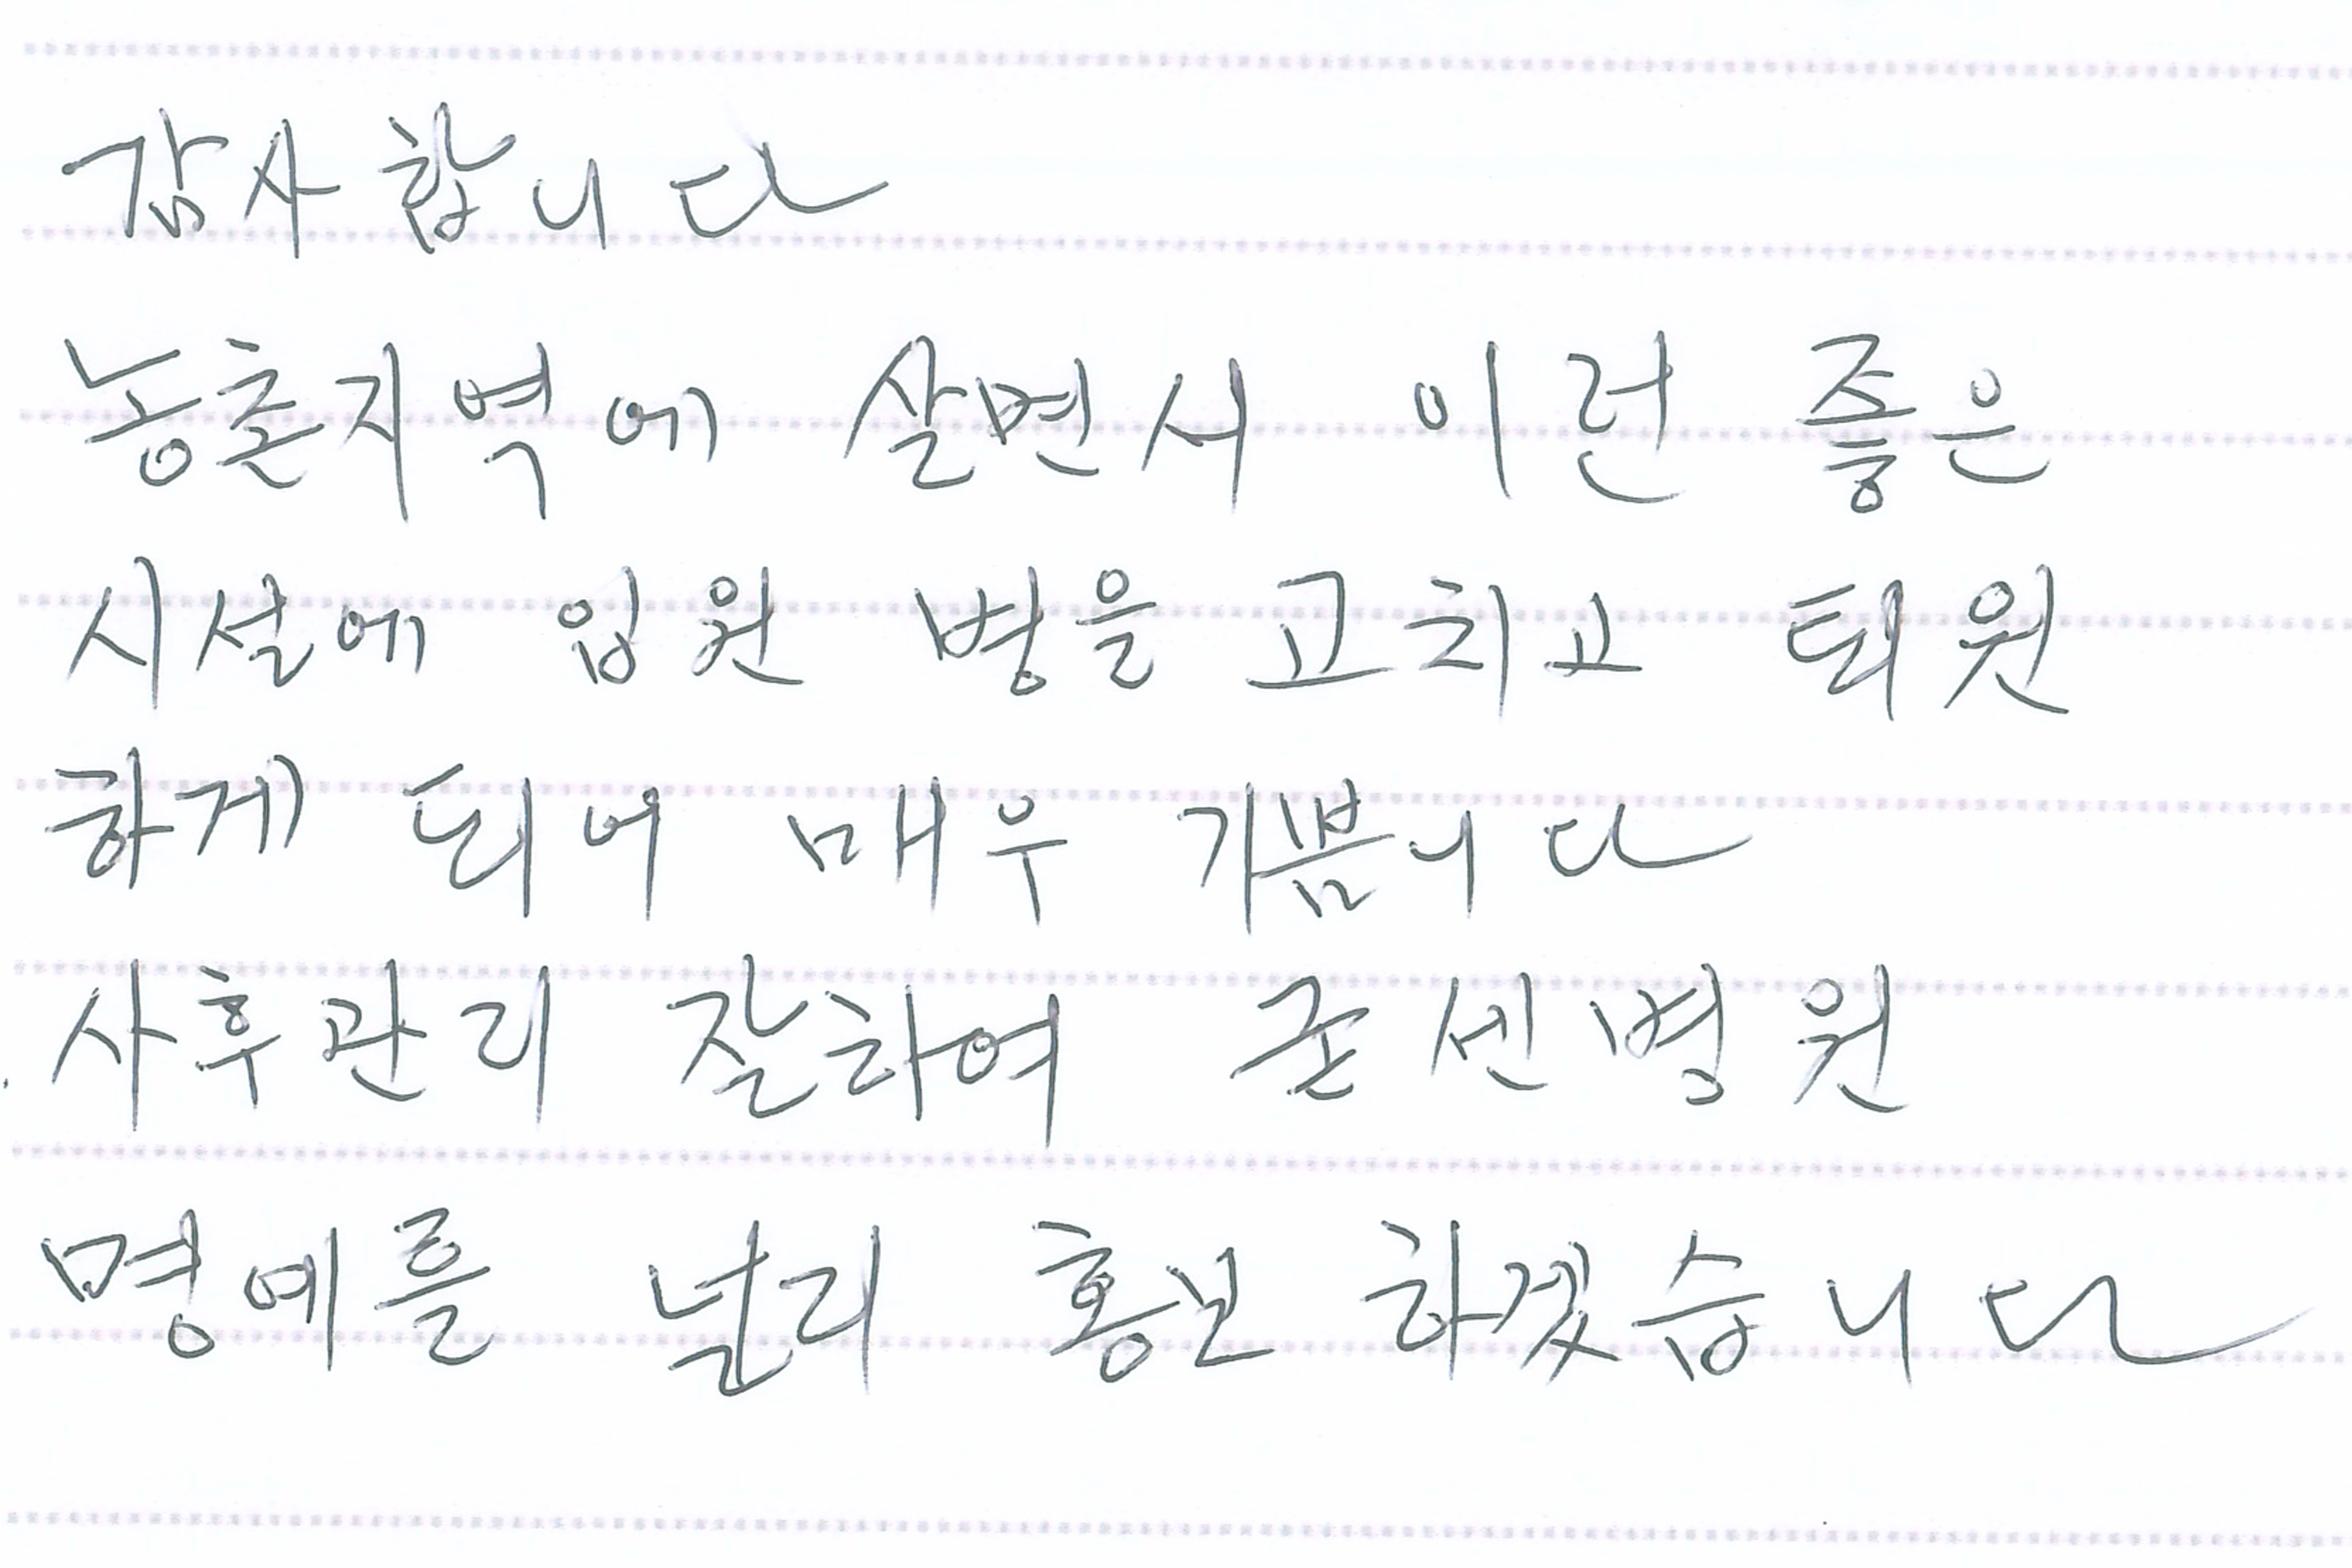 감사합니다
농촌지역에 살면서 이런 좋은
시설에 입원 병을 고치고 퇴원
하게 되어 매우 기쁩니다
사후관리 잘하여 굳센병원
명예를 널리 홍보 하겠습니다